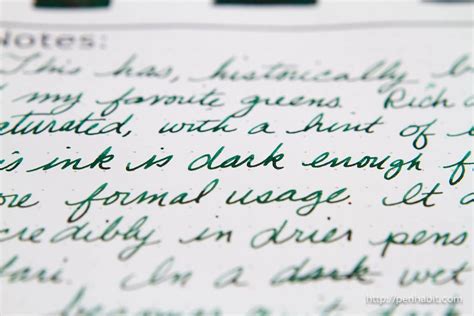 Notes:
This has, historically b
my favorite greens. Rich
aturated, with a hint of
s ink is dark enough f
ore formal usage. It
credibly in drier pens
fari. In a dark wet
http://penhabit.com